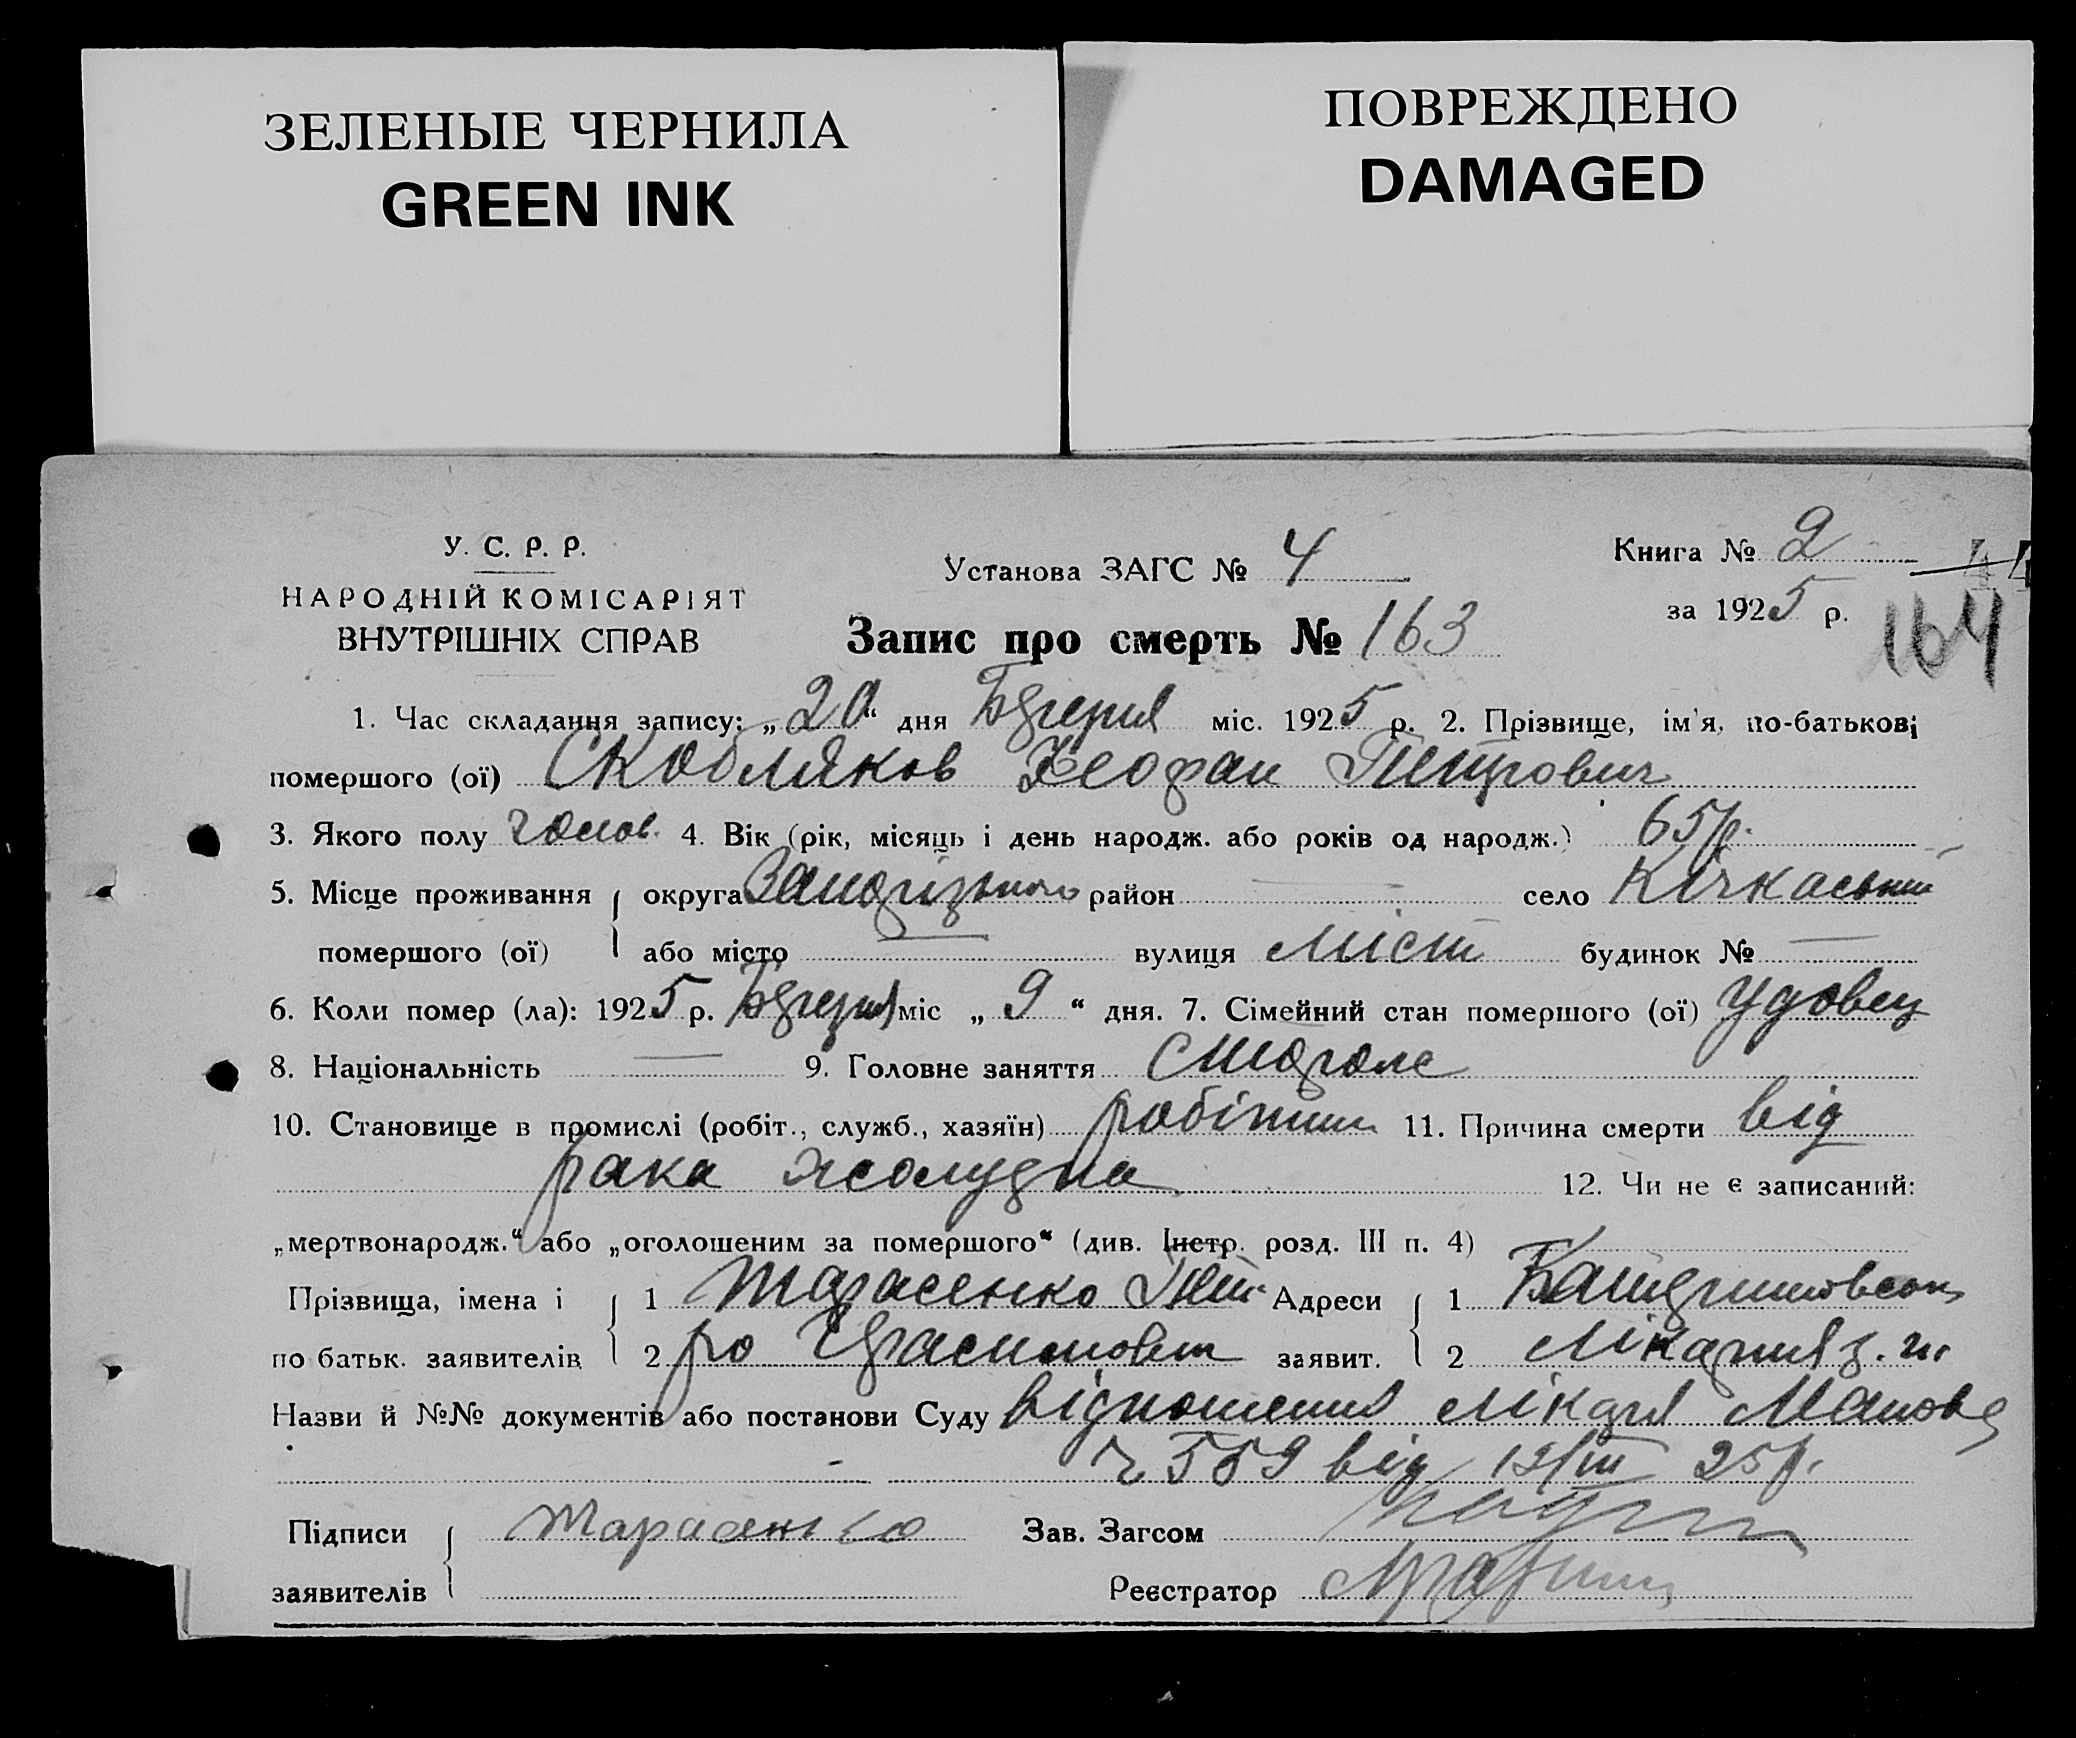 ЗЕЛЕНЫЕ ЧЕРНИЛА
GREEN INK
ПОВРЕЖДЕНО
DAMAGED
У. С. Р. Р.
НАРОДНІЙ КОМІСАРІЯТ
ВНУТРІШНІХ СПРАВ
Установа ЗАГС № 4
Запис про смерть № 163
Книга № 2
44
за 1925 р.
164
1. Час складання запису: „20“ дня міс. 1925 р. 2. Прізвище, ім'я, по-батькові
помершого (ої) Скобляков Феофан Петрович
3. Якого полу чолов. 4. Вік (рік, місяць і день народж. або років од народж.) 65 р.
5. Місце проживання округа район — село Кічкаський
помершого (ої) або місто — вулиця міст будинок № —
6. Коли помер (ла): 1925 р. міс „9“ дня. 7. Сімейний стан помершого (ої) удовец
8. Національність — 9. Головне заняття
10. Становище в промислі (робіт., служб., хазяїн) робітник 11. Причина смерти від
рака жолудка
12. Чи не є записаний:
„мертвонародж.“ або „оголошеним за помершого“ (див. Інстр. розд. III п. 4)
Прізвища, імена і 1 Тарасенко Пет Адреси 1
по батьк. заявителів 2 ро Герасимович заявит. 2
Назви й №№ документів або постанови Суду відношення лікаря
ч 559 від 12/III 25 р.
Підписи Тарасенко Зав. Загсом
заявителів Реєстратор